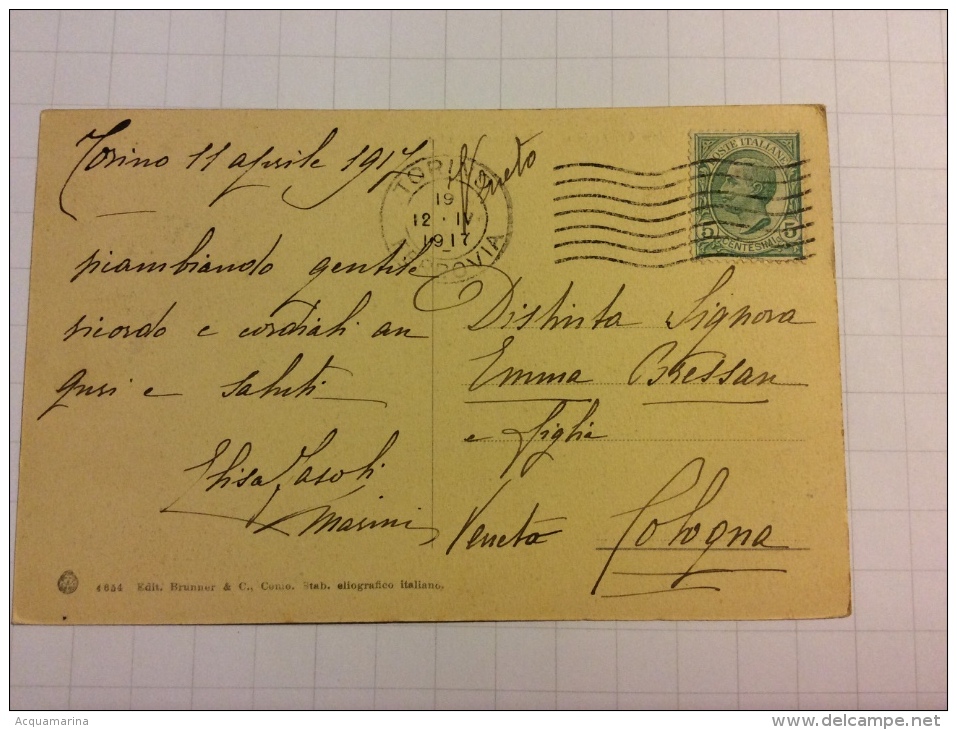 Torino 11 aprile 1917
ricambiando gentile
ricordo e cordiali au
guri e saluti
Elisa
Marini
4654 Edit. Brunner & C., Como. Stab. eliografico italiano.
TORINO
19
12 · IV
1917
FERROVIA
Veneto
POSTE ITALIANE
5 5
CENTESIMI
Distinta Signora
Emma Bressan
e figlie
Veneta Cologna
Acquamarina
www.delcampe.net